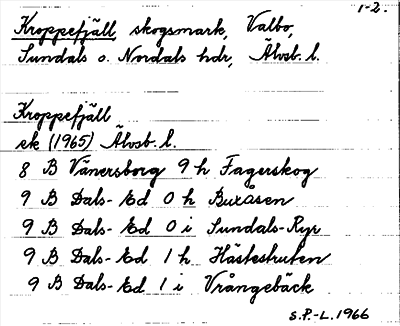 1-2.
Kroppefjäll, skogsmark, Valbo,
Sundals o. Nordals hdr, Älvsb. l.
Kroppefjäll
ek (1965) Älvsb. l.
8 B Vänersborg 9 h Fagerskog
9 B Dals-Ed 0 h Buxåsen
9 B Dals-Ed 0 i Sundals-Ryr
9 B Dals-Ed 1 h Hästestruten
9 B Dals-Ed 1 i Vrångebäck
S.P.-L. 1966